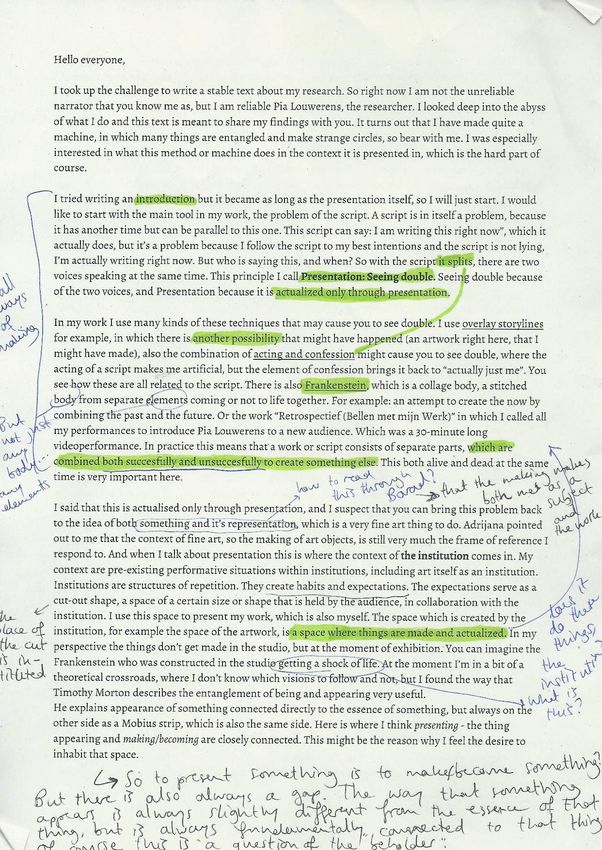 Hello everyone,
I took up the challenge to write a stable text about my research. So right now I am not the unreliable
narrator that you know me as, but I am reliable Pia Louwerens, the researcher. I looked deep into the abyss
of what I do and this text is meant to share my findings with you. It turns out that I have made quite a
machine, in which many things are entangled and make strange circles, so bear with me. I was especially
interested in what this method or machine does in the context it is presented in, which is the hard part of
course.
I tried writing an introduction but it became as long as the presentation itself, so I will just start. I would
like to start with the main tool in my work, the problem of the script. A script is in itself a problem, because
it has another time but can be parallel to this one. This script can say: I am writing this right now”, which it
actually does, but it's a problem because I follow the script to my best intentions and the script is not lying,
I'm actually writing right now. But who is saying this, and when? So with the script it splits, there are two
voices speaking at the same time. This principle I call Presentation: Seeing double. Seeing double because
of the two voices, and Presentation because it is actualized only through presentation.
all
ways
of
making
In my work I use many kinds of these techniques that may cause you to see double. I use overlay storylines
for example, in which there is another possibility that might have happened (an artwork right here, that I
might have made), also the combination of acting and confession might cause you to see double, where the
acting of a script makes me artificial, but the element of confession brings it back to “actually just me”. You
see how these are all related to the script. There is also Frankenstein, which is a collage body, a stitched
body from separate elements coming or not to life together. For example: an attempt to create the now by
combining the past and the future. Or the work “Retrospectief (Bellen met mijn Werk)” in which I called all
my performances to introduce Pia Louwerens to a new audience. Which was a 30-minute long
videoperformance. In practice this means that a work or script consists of separate parts, which are
combined both succesfully and unsuccesfully to create something else. This both alive and dead at the same
time is very important here.
But
not just
any
body...
any
elements
how to read
this through
Barad?
that the making makes
both me as a
subject
and the work
I said that this is actualised only through presentation, and I suspect that you can bring this problem back
to the idea of both something and it's representation, which is a very fine art thing to do. Adrijana pointed
out to me that the context of fine art, so the making of art objects, is still very much the frame of reference I
respond to. And when I talk about presentation this is where the context of the institution comes in. My
context are pre-existing performative situations within institutions, including art itself as an institution.
Institutions are structures of repetition. They create habits and expectations. The expectations serve as a
cut-out shape, a space of a certain size or shape that is held by the audience, in collaboration with the
institution. I use this space to present my work, which is also myself. The space which is created by the
institution, for example the space of the artwork, is a space where things are made and actualized. In my
perspective the things don't get made in the studio, but at the moment of exhibition. You can imagine the
Frankenstein who was constructed in the studio getting a shock of life. At the moment I'm in a bit of a
theoretical crossroads, where I don't know which visions to follow and not, but I found the way that
Timothy Morton describes the entanglement of being and appearing very useful.
He explains appearance of something connected directly to the essence of something, but always on the
other side as a Mobius strip, which is also the same side. Here is where I think presenting - the thing
appearing and making/becoming are closely connected. This might be the reason why I feel the desire to
inhabit that space.
place of
the cut
is in-
stituted
it
do these
things,
the
institution
what is
this?
So to present something is to make/become something?
But there is also always a gap. The way that something
appears is always slightly different from the essence of that
thing, but is always fundamentally connected to that thing
of course this is a question of the beholder.